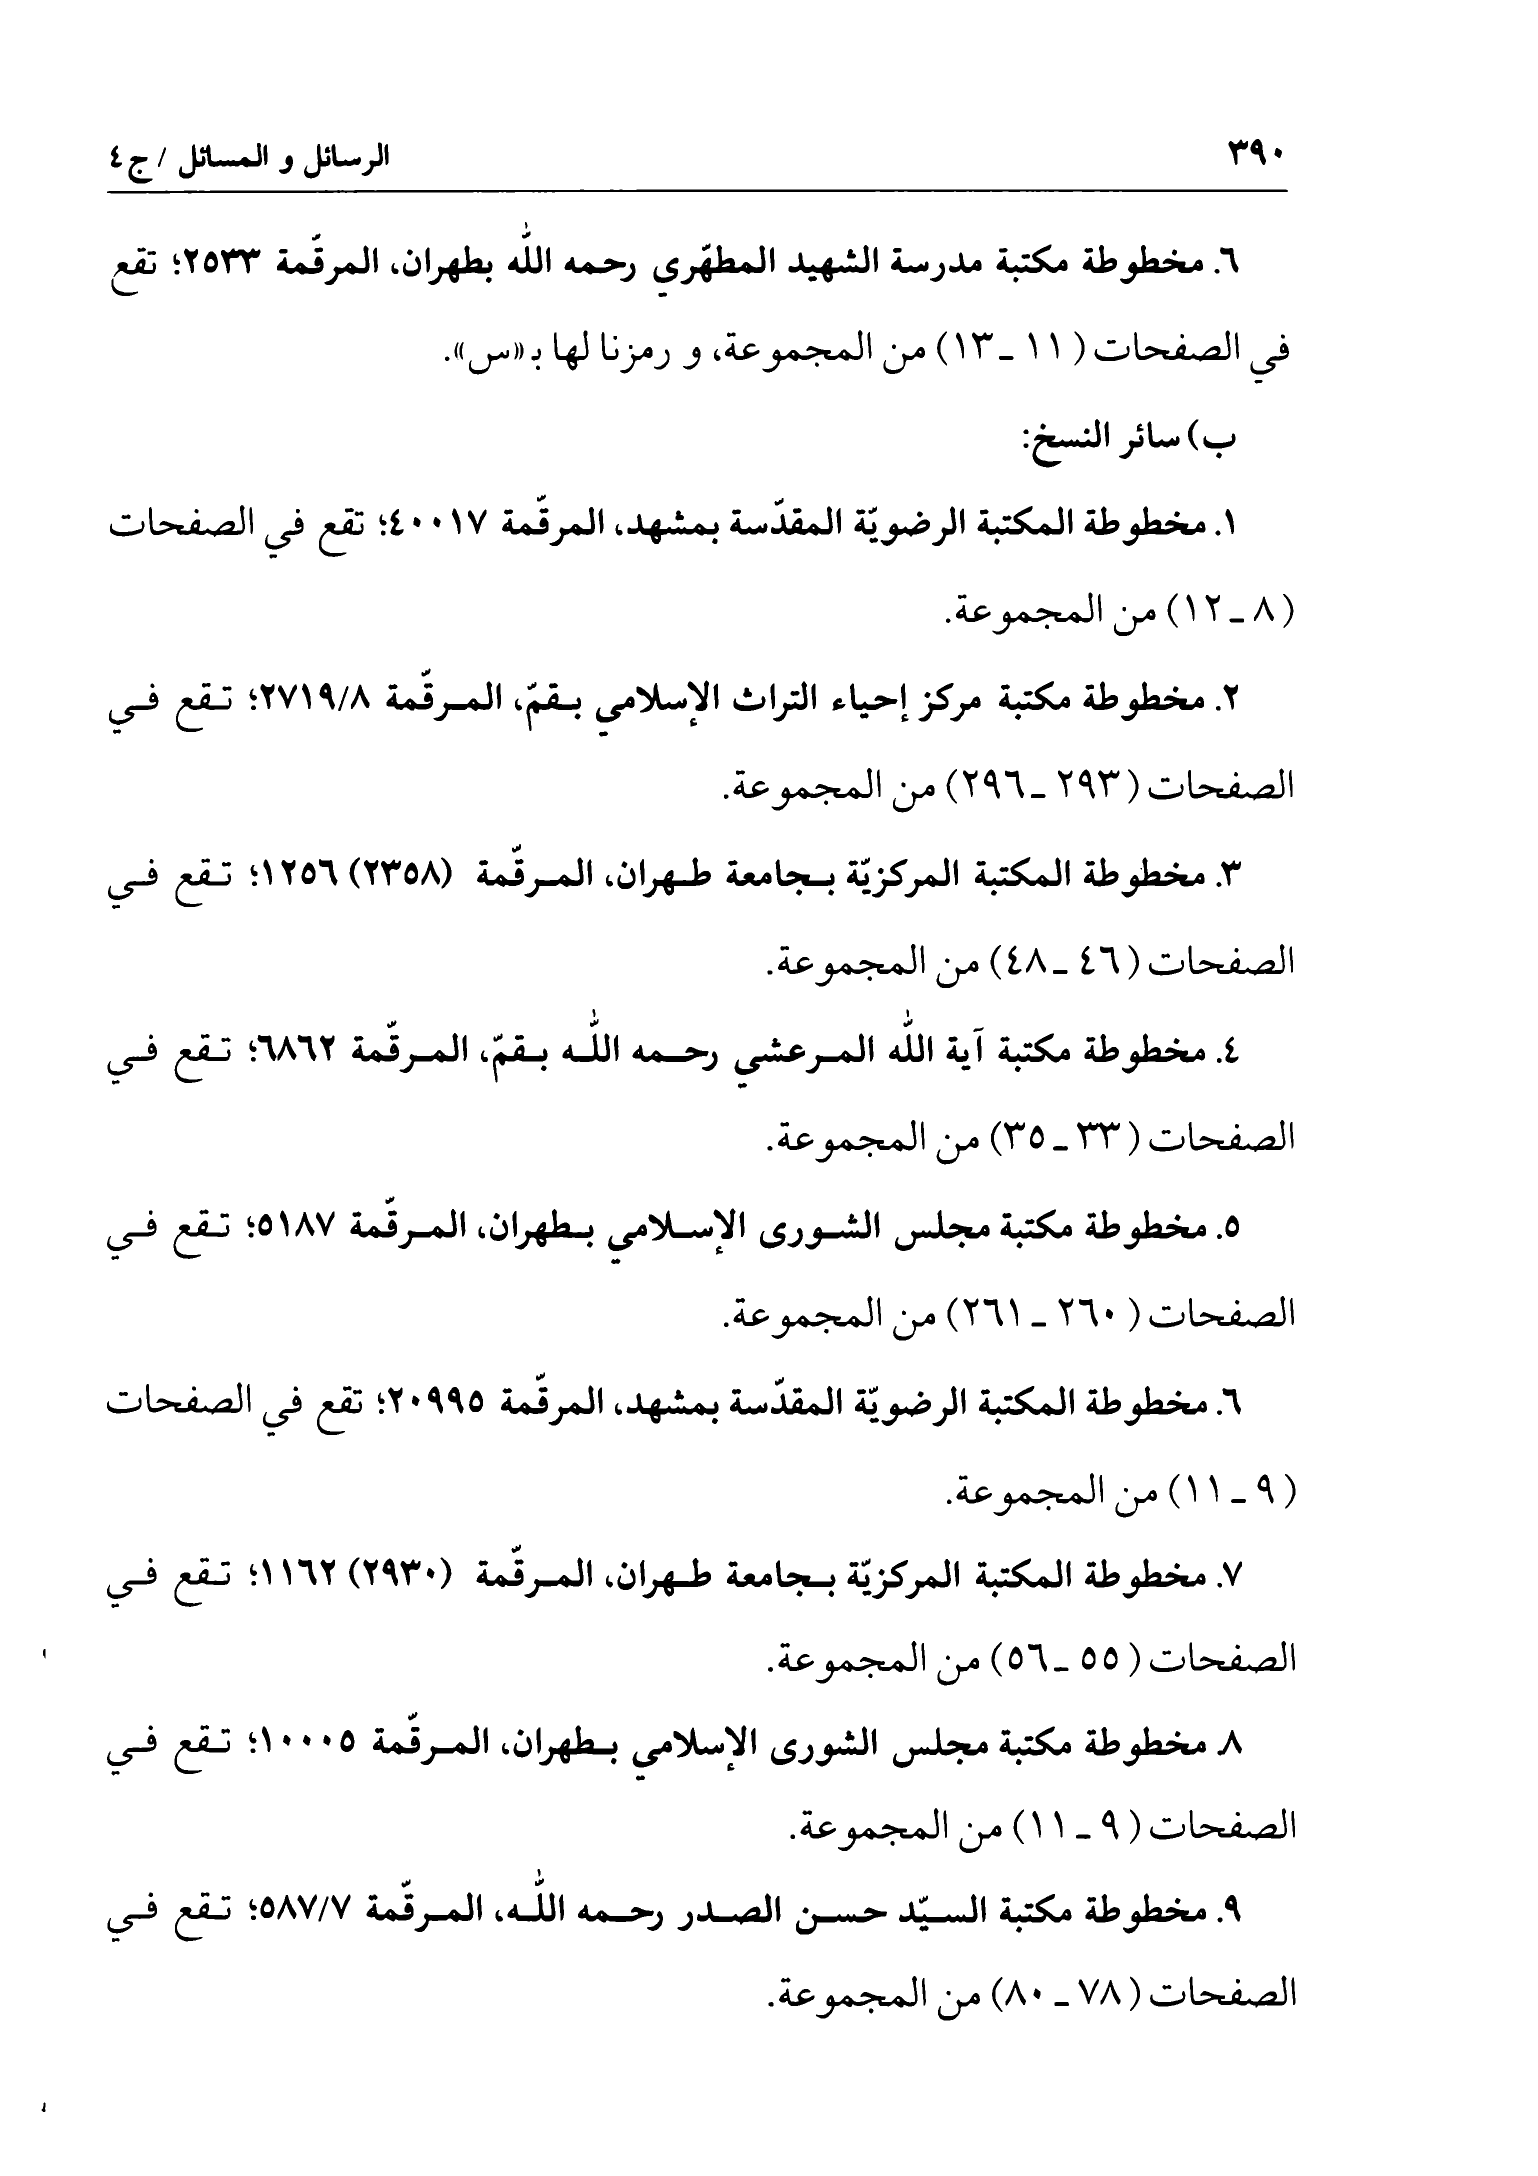 ٣٩٠
الرسائل و المسائل / ج٤
٦. مخطوطة مكتبة مدرسة الشهيد المطهّري رحمه اللّٰه بطهران، المرقّمة ٢٥٣٣؛ تقع
في الصفحات (١١ ـ ١٣) من المجموعة، و رمزنا لها بـ «س».
ب) سائر النسخ:
١. مخطوطة المكتبة الرضويّة المقدّسة بمشهد، المرقّمة ٤٠٠١٧؛ تقع في الصفحات
(٨ ـ ١٢) من المجموعة.
٢. مخطوطة مكتبة مركز إحياء التراث الإسلامي بـقمّ، المـرقّمة ٢٧١٩/٨؛ تـقع فـي
الصفحات (٢٩٣ ـ ٢٩٦) من المجموعة.
٣. مخطوطة المكتبة المركزيّة بـجامعة طـهران، المـرقّمة (٢٣٥٨) ١٢٥٦؛ تـقع فـي
الصفحات (٤٦ ـ ٤٨) من المجموعة.
٤. مخطوطة مكتبة آية اللّٰه المـرعشي رحـمه اللّٰـه بـقمّ، المـرقّمة ٦٨٦٢؛ تـقع فـي
الصفحات (٣٣ ـ ٣٥) من المجموعة.
٥. مخطوطة مكتبة مجلس الشـورى الإسـلامي بـطهران، المـرقّمة ٥١٨٧؛ تـقع فـي
الصفحات (٢٦٠ ـ ٢٦١) من المجموعة.
٦. مخطوطة المكتبة الرضويّة المقدّسة بمشهد، المرقّمة ٢٠٩٩٥؛ تقع في الصفحات
(٩ ـ ١١) من المجموعة.
٧. مخطوطة المكتبة المركزيّة بـجامعة طـهران، المـرقّمة (٢٩٣٠) ١١٦٢؛ تـقع فـي
الصفحات (٥٥ ـ ٥٦) من المجموعة.
٨. مخطوطة مكتبة مجلس الشورى الإسلامي بـطهران، المـرقّمة ١٠٠٠٥؛ تـقع فـي
الصفحات (٩ ـ ١١) من المجموعة.
٩. مخطوطة مكتبة السـيّد حسـن الصـدر رحـمه اللّٰـه، المـرقّمة ٥٨٧/٧؛ تـقع فـي
الصفحات (٧٨ ـ ٨٠) من المجموعة.